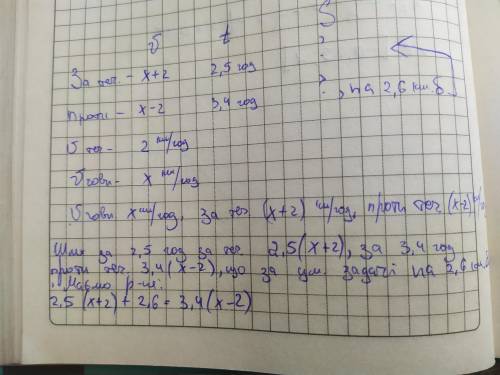 v t S
За теч. - x+2 2,5 год ?
проти - x-2 3,4 год ? , на 2,6 км.б.
v теч - 2 км/год
v човн - x км/год
v човн x км/год, за теч (x+2) км/год, проти теч (x-2) км/г
Шлях за 2,5 год за теч. 2,5(x+2), за 3,4 год
проти теч. 3,4(x-2), що за ум. задачі на 2,6 км.б
. Маємо р-ня:
2,5(x+2) + 2,6 = 3,4(x-2)